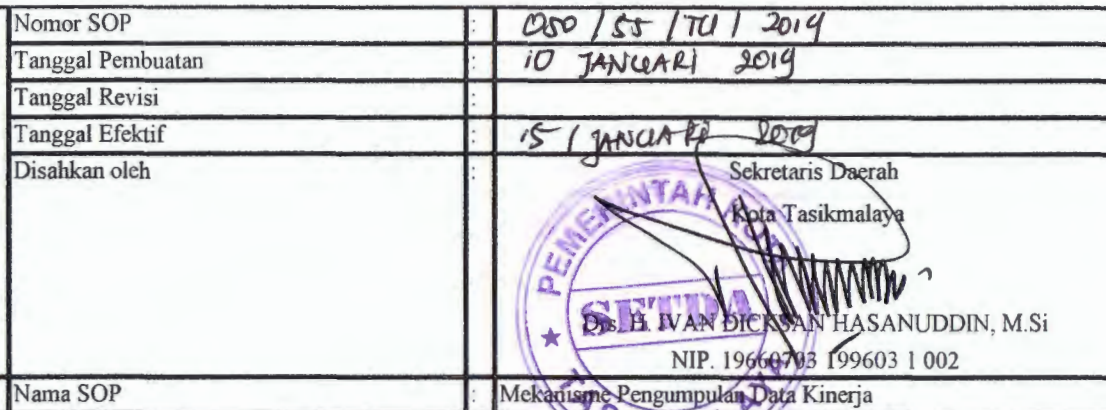 Nomor SOP : 050 / 55 / TU / 2019
Tanggal Pembuatan : 10 JANUARI 2019
Tanggal Revisi :
Tanggal Efektif : 15 / JANUARI 2019
Disahkan oleh : Sekretaris Daerah
Kota Tasikmalaya
PEMERINTAH KOTA
SETDA
Drs. H. IVAN DICKSAN HASANUDDIN, M.Si
NIP. 19660703 199603 1 002
Nama SOP : Mekanisme Pengumpulan Data Kinerja